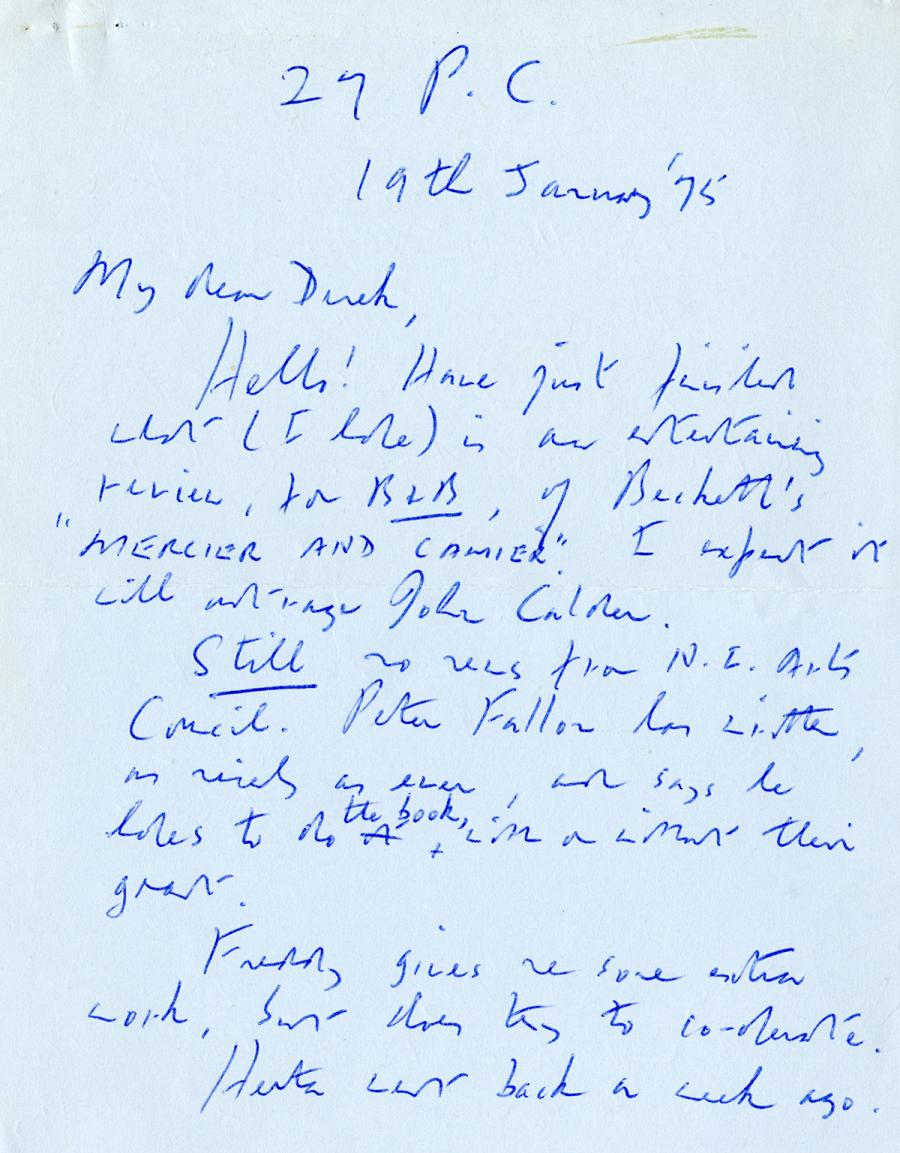 27 P.C.
19th January '75
My dear Derek,
Hello! Have just finished
what (I hope) is an entertaining
review, for B & B, of Beckett's
"MERCIER AND CAMIER". I expect it
will outrage John Calder.
Still no news from N.I. Arts
Council. Peter Fallon has written,
as nicely as ever, and says he
hopes to do the book, with or without their
grant.
Freddy gives me some extra
work, but does try to co-operate.
Herta went back a week ago.